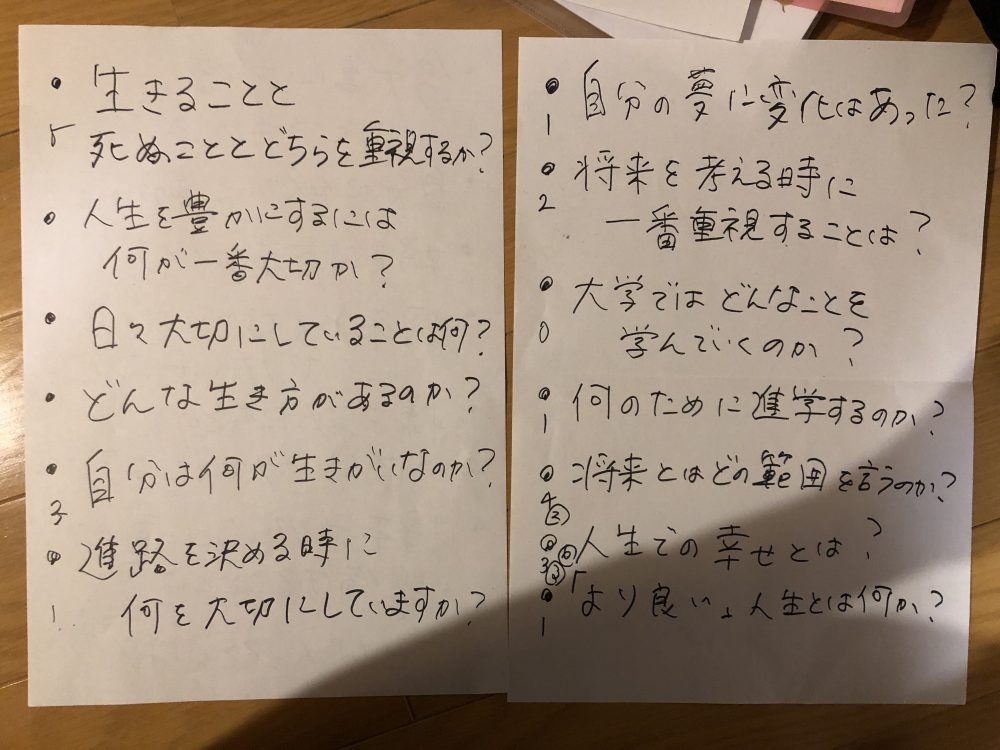 • 生きることと
5 死ぬこととどちらを重視するか?
• 人生を豊かにするには
何が一番大切か?
• 日々大切にしていることは何?
• どんな生き方があるのか?
• 自分は何が生きがいなのか?
3
• 進路を決める時に
1 何を大切にしていますか?
• 自分の夢に変化はあった?
1
• 将来を考える時に
2 一番重視することは?
• 大学ではどんなことを
0 学んでいくのか?
• 何のために進学するのか?
1
• 将来とはどの範囲を言うのか?
4
• 人生での幸せとは?
3
• 「より良い」人生とは何か?
1